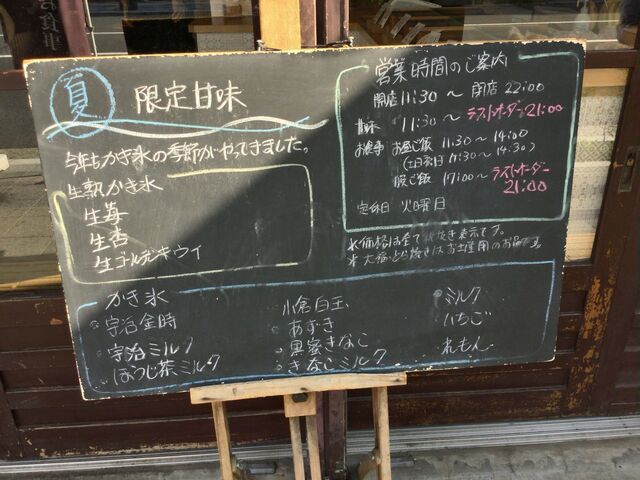 夏 限定甘味
今年もかき氷の季節がやってきました。
生氷かき氷
生苺
生杏
生ゴールデンキウイ
営業時間のご案内
開店 11:30 ～ 閉店 22:00
甘味 11:30 ～ ラストオーダー 21:00
お食事 お昼ご飯 11:30 ～ 14:00
(土日祭日 11:30 ～ 14:30)
晩ご飯 17:00 ～ ラストオーダー 21:00
定休日 火曜日
※価格は全て税抜き表示です。
※大福・どら焼きはお土産用のお品
かき氷
宇治金時
宇治ミルク
ほうじ茶ミルク
小倉白玉
あずき
黒蜜きなこ
きなこミルク
ミルク
いちご
れもん
お食事